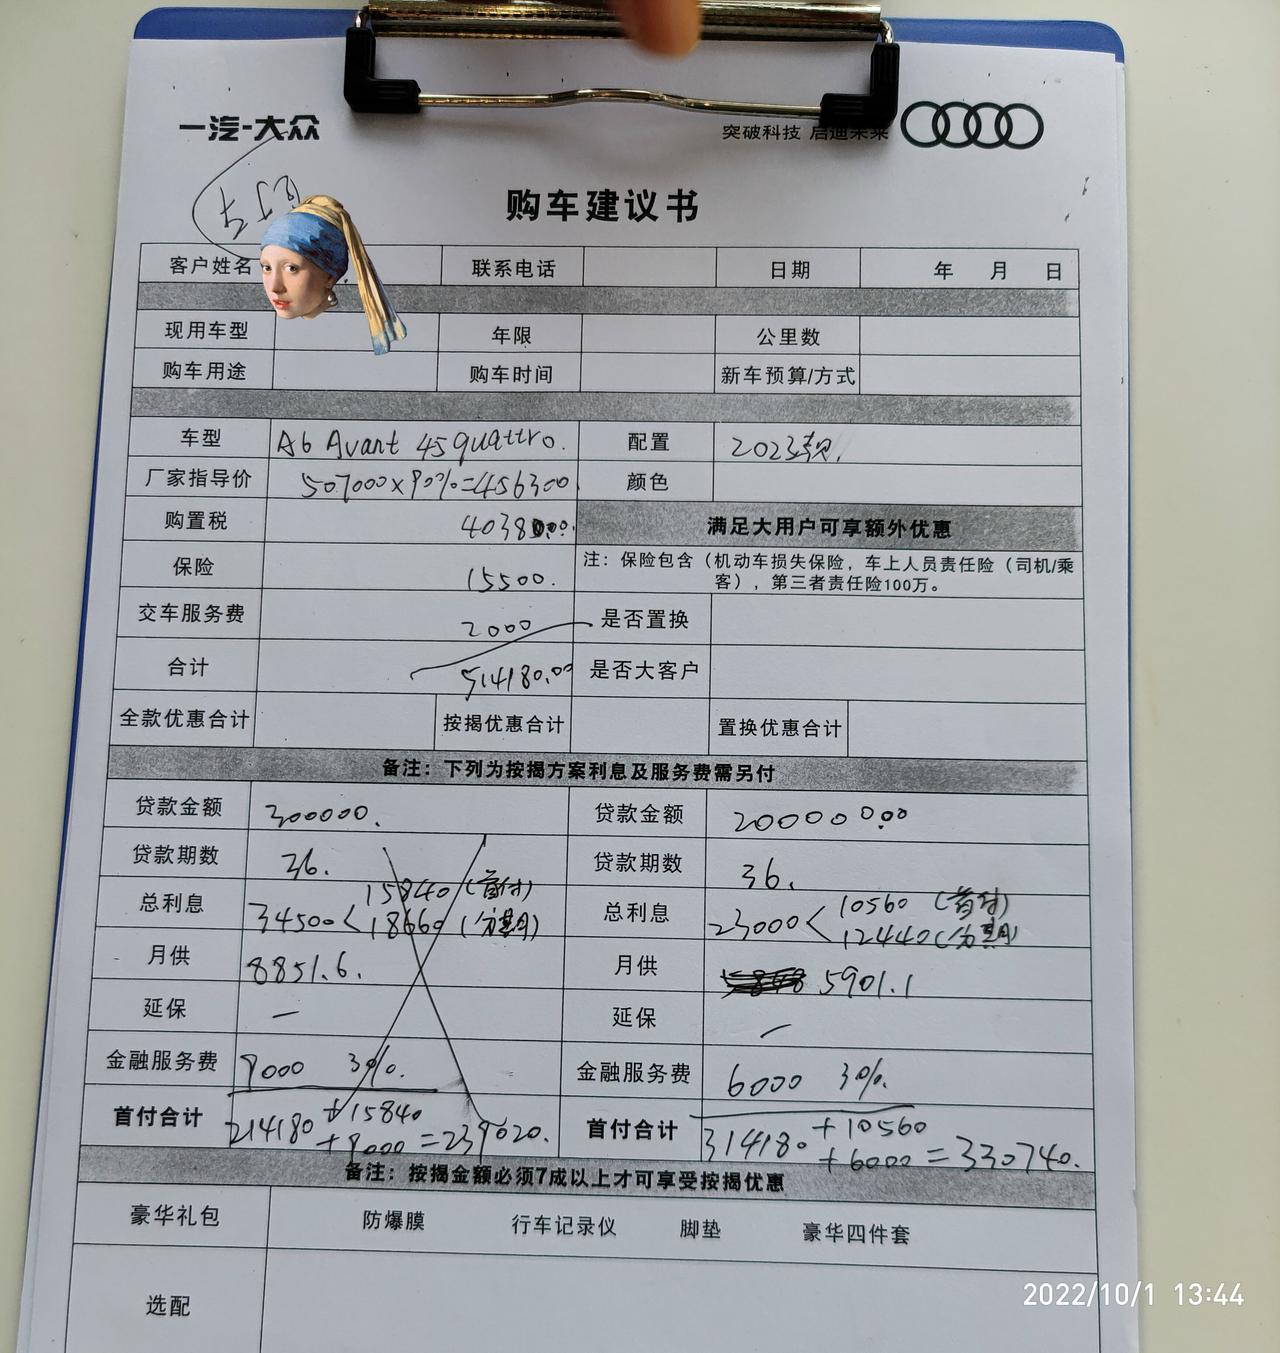 一汽-大众
突破科技 启迪未来
购车建议书
客户姓名 联系电话 日期 年 月 日
现用车型 年限 公里数
购车用途 购车时间 新车预算/方式
车型 A6 Avant 45 quattro. 配置 2023款.
厂家指导价 507000×90%=456300 颜色
购置税 40380.00 满足大用户可享额外优惠
保险 15500. 注：保险包含（机动车损失保险，车上人员责任险（司机/乘
客），第三者责任险100万。
交车服务费 2000 是否置换
合计 514180.00 是否大客户
全款优惠合计 按揭优惠合计 置换优惠合计
备注：下列为按揭方案利息及服务费需另付
贷款金额 300000. 贷款金额 200000.00
贷款期数 36. 贷款期数 36.
总利息 34500< 15840 (首付) 总利息 23000< 10560 (首付)
18660 (分期) 12440 (分期)
月供 8851.6. 月供 5901.1
延保 — 延保 —
金融服务费 9000 3%. 金融服务费 6000 3%.
首付合计 214180 +15840 首付合计 314180 +10560
+9000 =239020. +6000 =330740.
备注：按揭金额必须7成以上才可享受按揭优惠
豪华礼包 防爆膜 行车记录仪 脚垫 豪华四件套
选配
2022/10/1 13:44